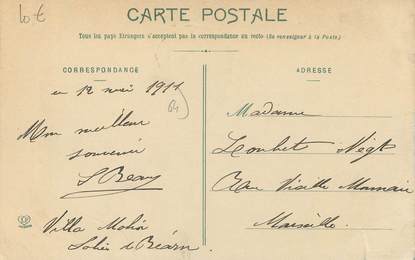 10 €
CARTE POSTALE
Tous les pays Étrangers n'acceptent pas la correspondance au recto (Se renseigner à la Poste)
CORRESPONDANCE
ADRESSE
12 mai 1911
64
Mon meilleur
souvenir
Villa
Salies de Béarn
Madame
Loubet Négt
Rue Vieille Monnaie
Marseille